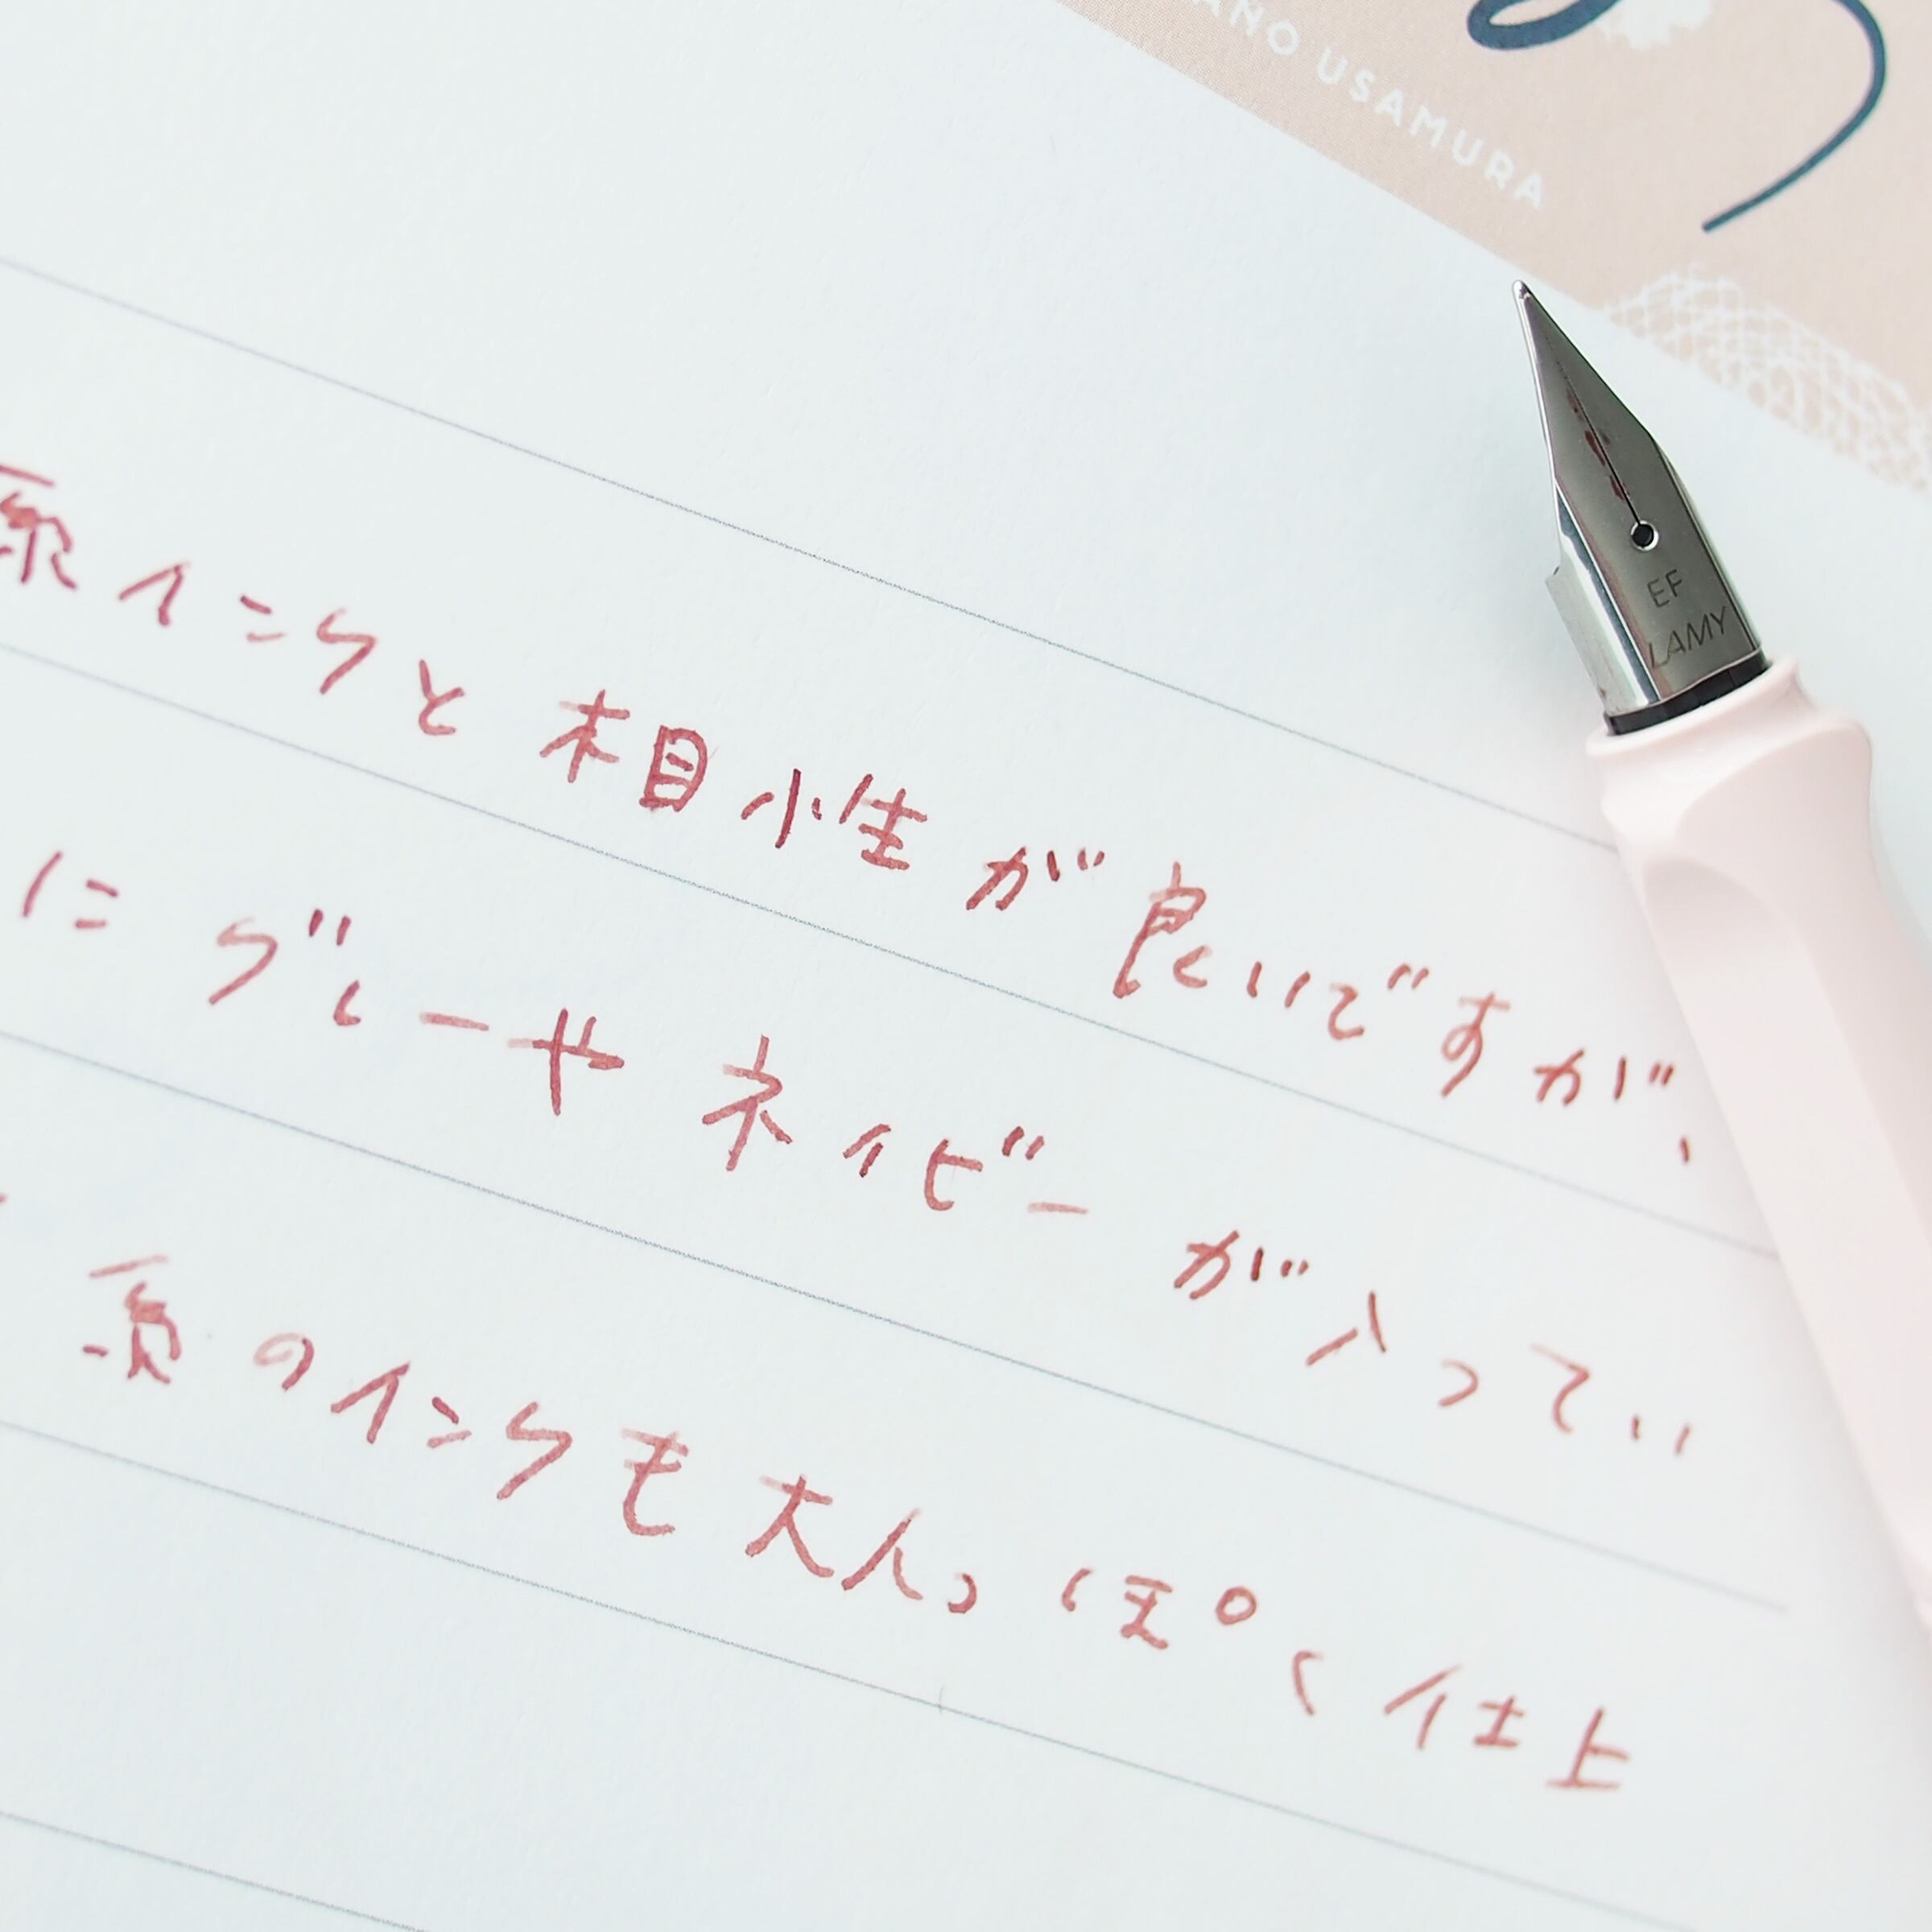 ANO USAMURA
EF
LAMY
系インクと相性が良いですが、
にグレーやネイビーが入ってい
系のインクも大人っぽく仕上